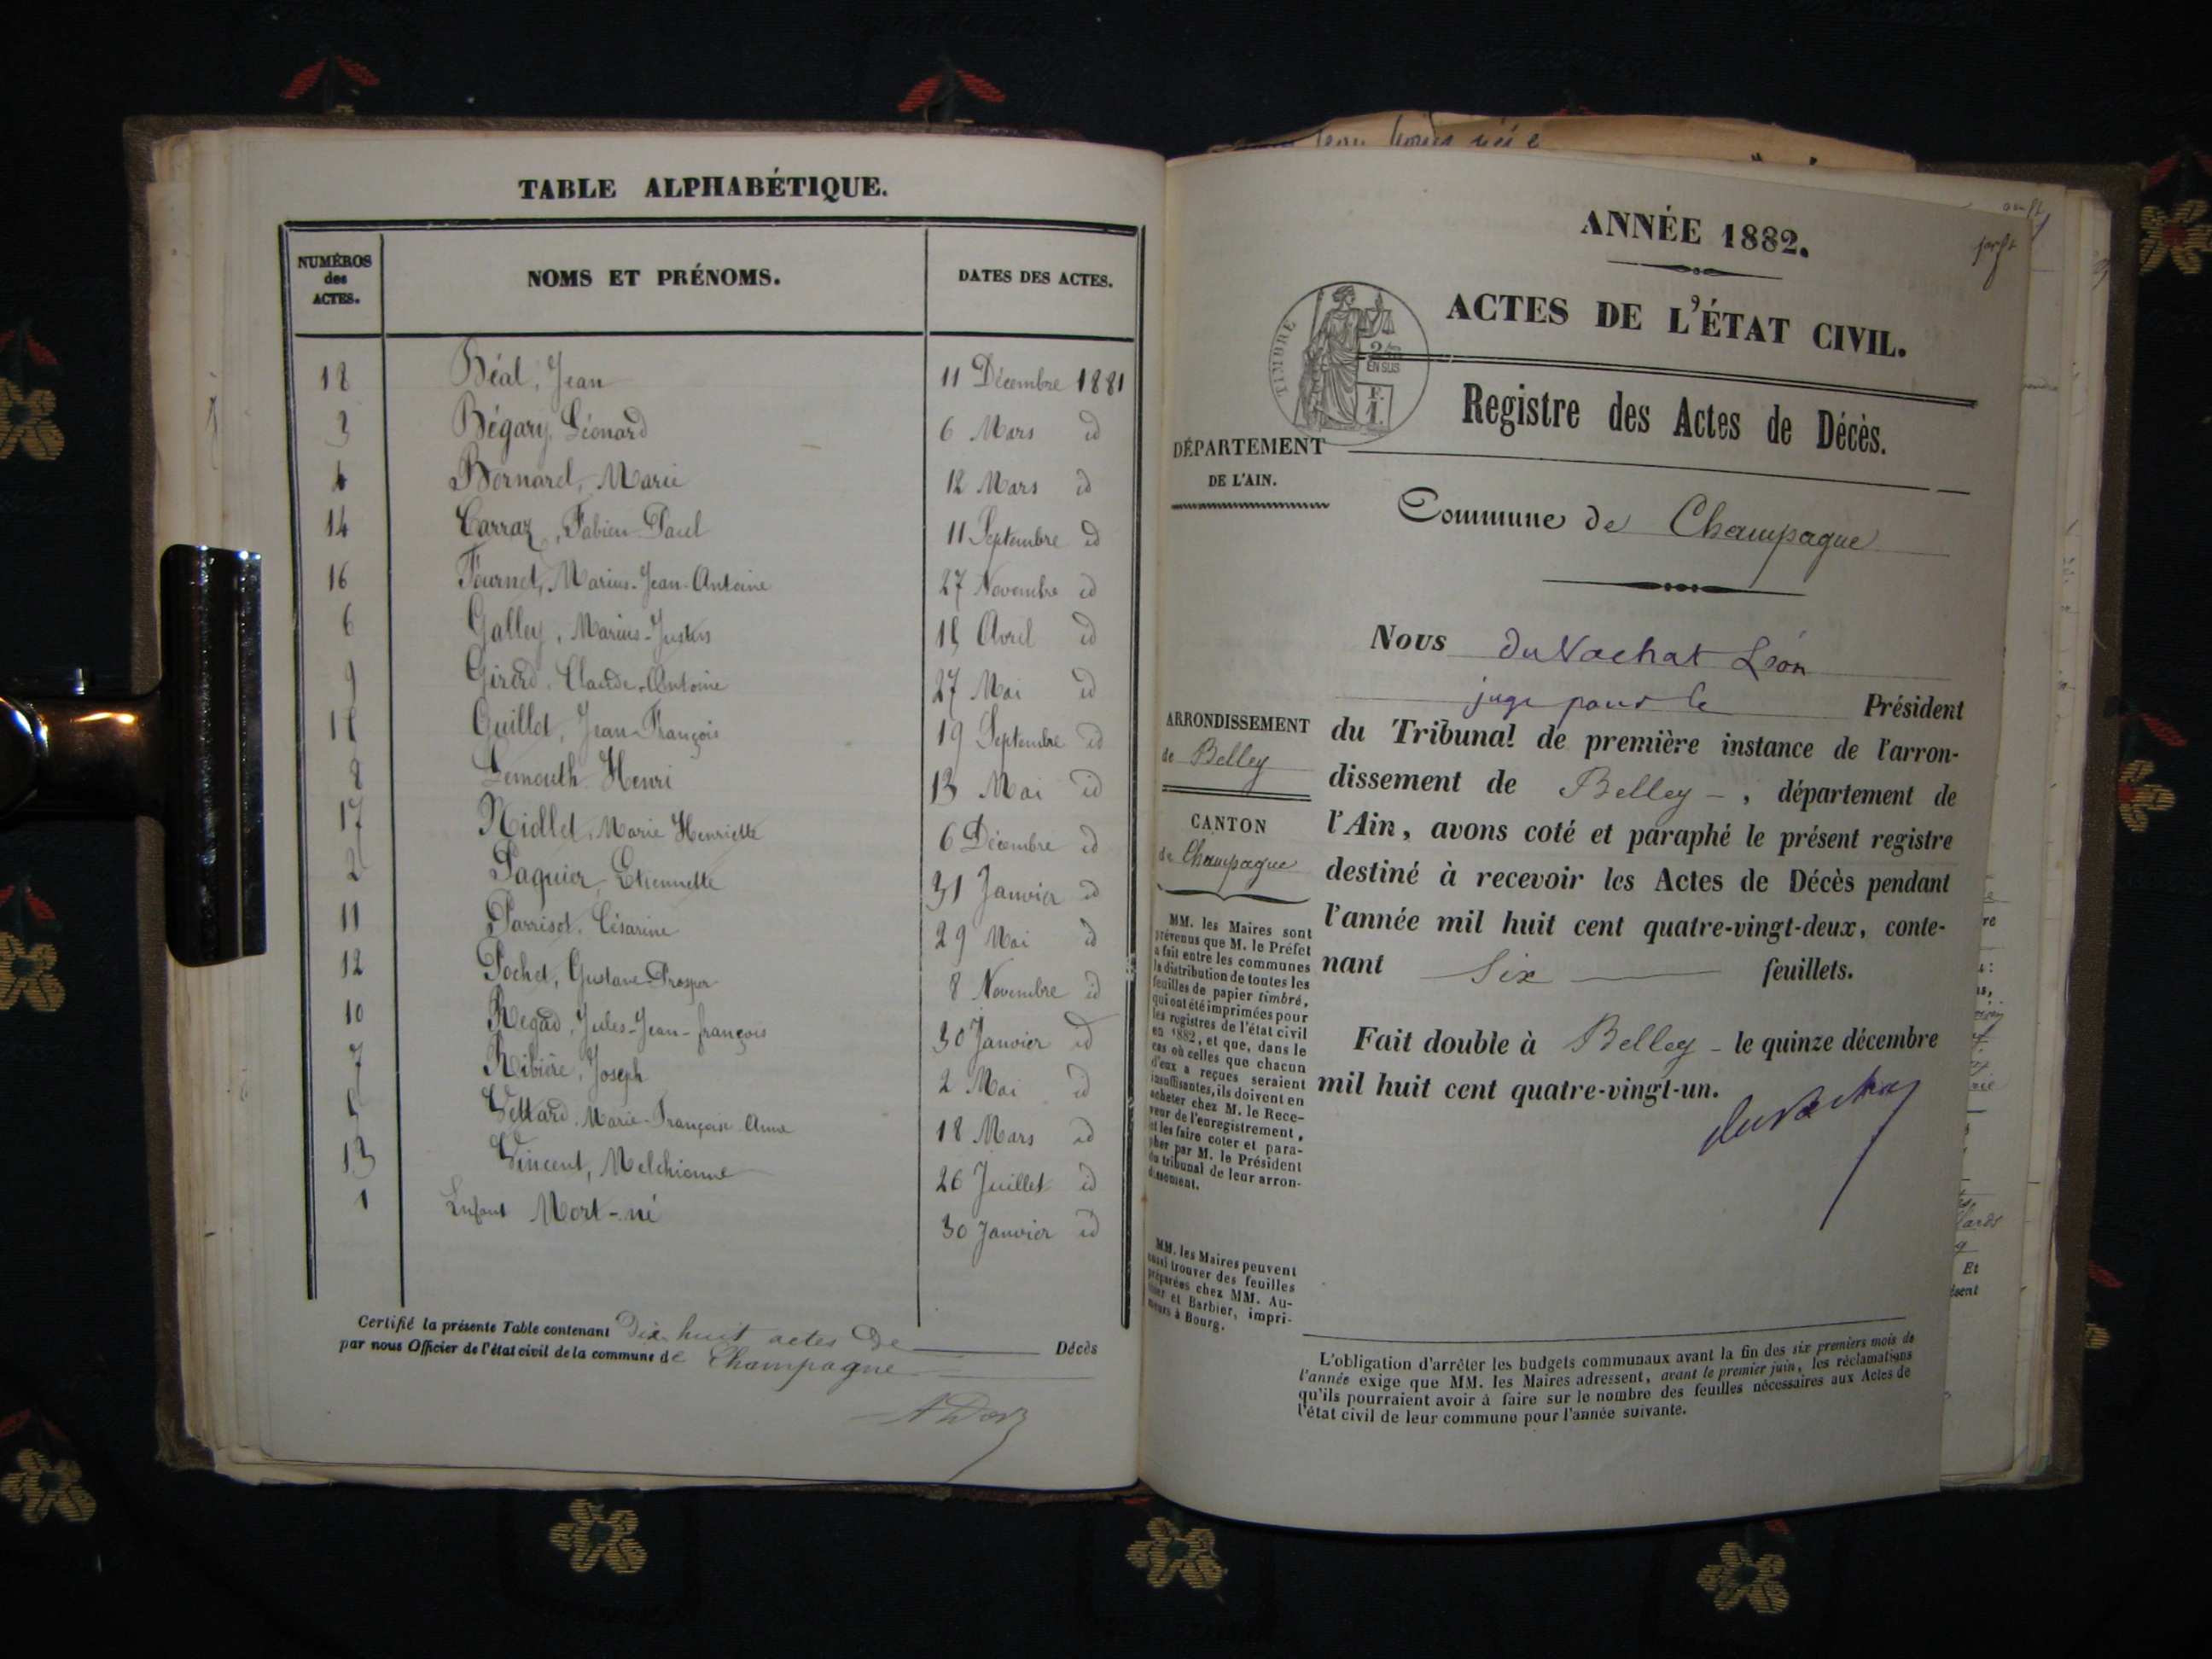 TABLE ALPHABÉTIQUE.
NUMÉROS
des
ACTES.
NOMS ET PRÉNOMS.
DATES DES ACTES.
18 Béal, Jean 11 Décembre 1881
3 Bégary, Léonard 6 Mars id
4 Bernard, Marie 12 Mars id
14 Carraz, Fabien-Paul 11 Septembre id
16 Fournet, Marius-Jean-Antoine 27 Novembre id
6 Galley, Marius-Justin Avril id
9 Girerd, Claude-Antoine 27 Mai id
Guillet, Jean-François 19 Septembre id
8 Lemouth Henri 13 Mai id
17 Marie Henriette 6 Décembre id
2 Paquier, Etiennette 31 Janvier id
11 Parrisot, Césarine 29 Mai id
12 Pochet, Gustave Prosper 8 Novembre id
10 Regad, Jules-Jean-François 30 Janvier id
7 Ribière, Joseph 2 Mai id
5 Marie-Françoise Anna 18 Mars id
13 Vincent, Melchionne 26 Juillet id
1 Enfant Mort-né 30 Janvier id
Certifié la présente Table contenant Dix huit actes de Décès
par nous Officier de l'état civil de la commune de Champagne
ANNÉE 1882.
ACTES DE L'ÉTAT CIVIL.
TIMBRE
EN SUS
Registre des Actes de Décès.
DÉPARTEMENT
DE L'AIN.
Commune de Champagne
Nous du Vachat Léon
juge pour le Président
ARRONDISSEMENT
de Belley
du Tribunal de première instance de l'arron-
dissement de Belley - , département de
l'Ain, avons coté et paraphé le présent registre
destiné à recevoir les Actes de Décès pendant
l'année mil huit cent quatre-vingt-deux, conte-
nant Six feuillets.
CANTON
de Champagne
MM. les Maires sont
prévenus que M. le Préfet
a fait entre les communes
la distribution de toutes les
feuilles de papier timbré,
qui ont été imprimées pour
les registres de l'état civil
en 1882, et que, dans le
cas où celles que chacun
d'eux a reçues seraient
insuffisantes, ils doivent en
acheter chez M. le Rece-
veur de l'enregistrement,
et les faire coter et para-
pher par M. le Président
du tribunal de leur arron-
dissement.
Fait double à Belley - le quinze décembre
mil huit cent quatre-vingt-un.
du Vachat
MM. les Maires peuvent
aussi trouver des feuilles
préparées chez MM. Au-
et Barbier, impri-
meurs à Bourg.
L'obligation d'arrêter les budgets communaux avant la fin des six premiers mois de
l'année exige que MM. les Maires adressent, avant le premier juin, les réclamations
qu'ils pourraient avoir à faire sur le nombre des feuilles nécessaires aux Actes de
l'état civil de leur commune pour l'année suivante.